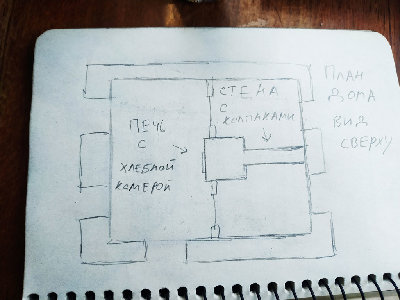 ПЛАН
ДОМА
ВИД
СВЕРХУ
СТЕНА
С
КОЛПАКАМИ
ПЕЧЬ
С
ХЛЕБНОЙ
КАМЕРОЙ